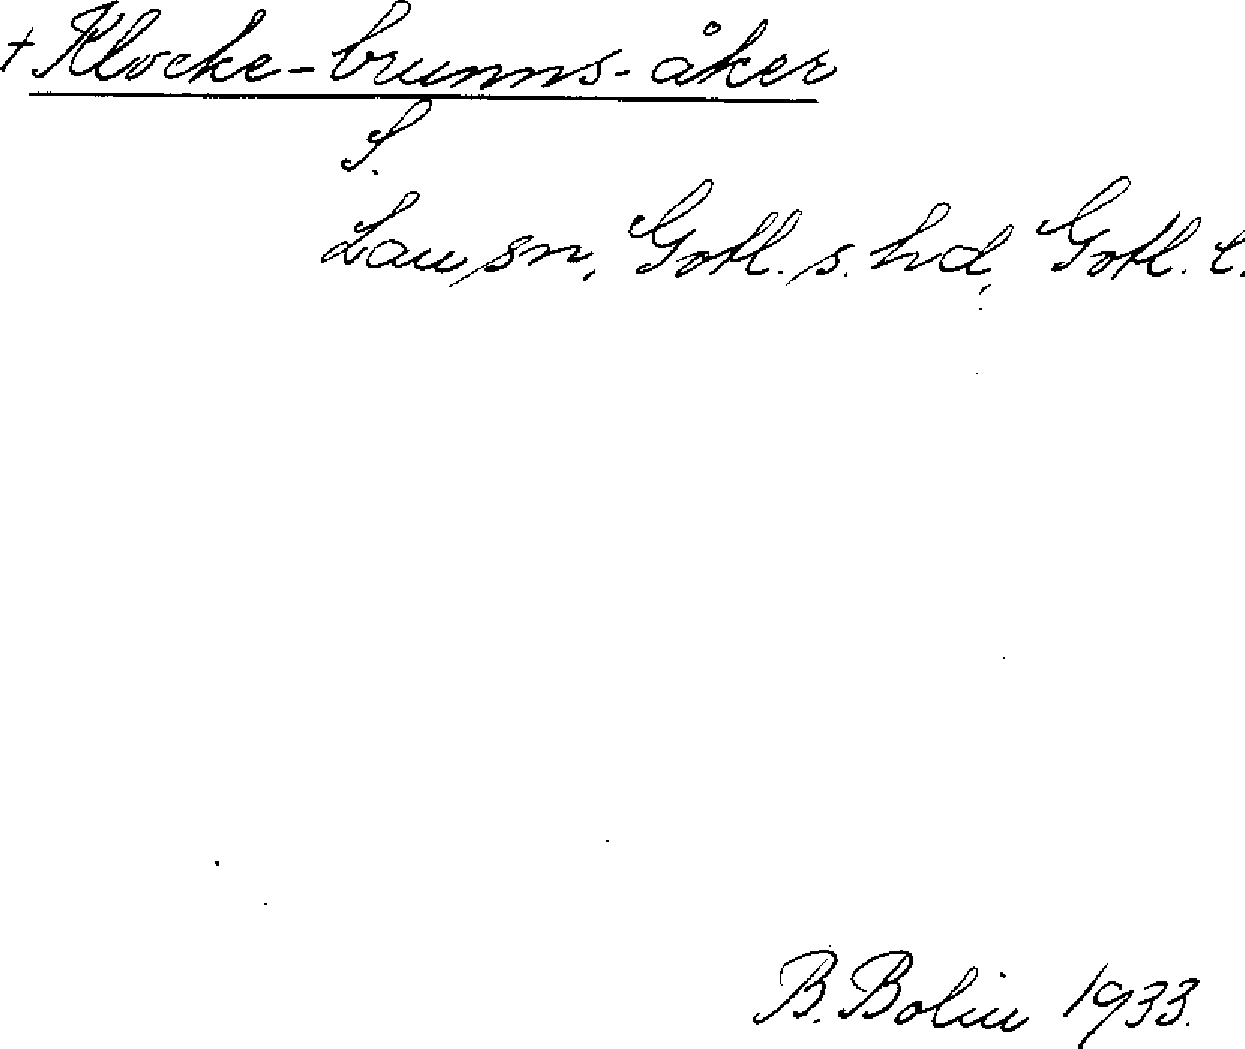 + Klocke-brunns-åker
S.
Lau sn, Gotl. s. hd, Gotl. l.
B. Bolin 1933.